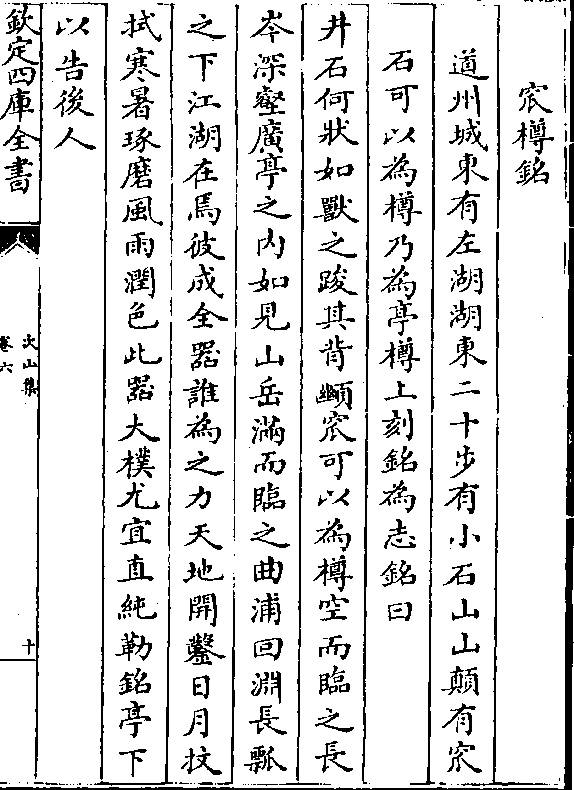 窊樽銘
道州城東有左湖湖東二十步有小石山山顛有窊
石可以為樽乃為亭樽上刻銘為志銘曰
井石何狀如獸之踆其背窊可以為樽空而臨之長
岑深壑廣亭之内如見山岳滿而臨之曲浦回淵長瓢
之下江湖在焉彼成全器誰為之力天地開鑿日月抆
拭寒暑琢磨風雨潤色此器大樸尤宜直純勒銘亭下
以告後人
欽定四庫全書
次山集
卷六
十